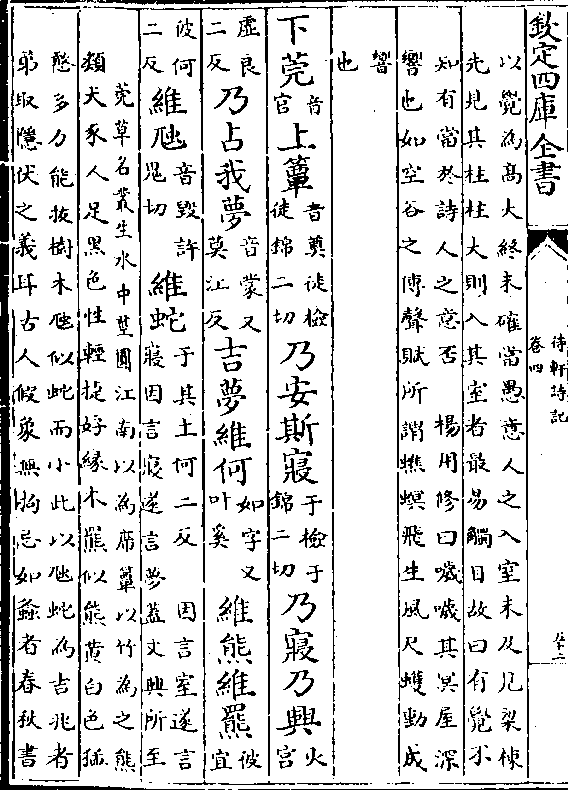 欽定四庫全書
待軒詩記
卷四
以覺為高大終未確當愚意人之入室未及凡梁棟
先見其柱柱大則入其室者最易觸目故曰有覺不
知有當於詩人之意否 楊用修曰噦噦其冥屋深
響也如空谷之傳聲賦所謂蟭螟飛生風尺蠖動成
響
也
下莞音官上簟音奠徒檢徒錦二切乃安斯寢于檢于錦二切乃寢乃興火宮
虛良二反乃占我夢音蒙又莫江反吉夢維何如字又叶奚維熊維羆彼宜
彼何二反維虺音毀許鬼切維蛇于其土何二反 因言室遂言寢因言寢遂言夢蓋文興所至
莞草名叢生水中莖圓江南以為席簟以竹為之熊
類犬豕人足黑色性輕捷好緣木羆似熊黄白色猛
憨多力能拔樹木虺似蛇而小此以虺蛇為吉兆者
第取隱伏之義耳古人假象無拘忌如螽者春秋書